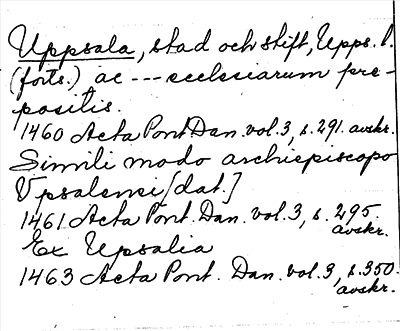 Uppsala, stad och stift, Upps. l.
(forts.) ac --- ecclesiarum pre-
positis.
1460 Acta Pont. Dan. vol. 3, s. 291. avskr.
Simili modo archiepiscopo
Vpsalensi [dat.]
1461 Acta Pont. Dan. vol. 3, s. 295.
avskr.
Ex Upsalia
1463 Acta Pont. Dan. vol. 3, s. 350.
avskr.